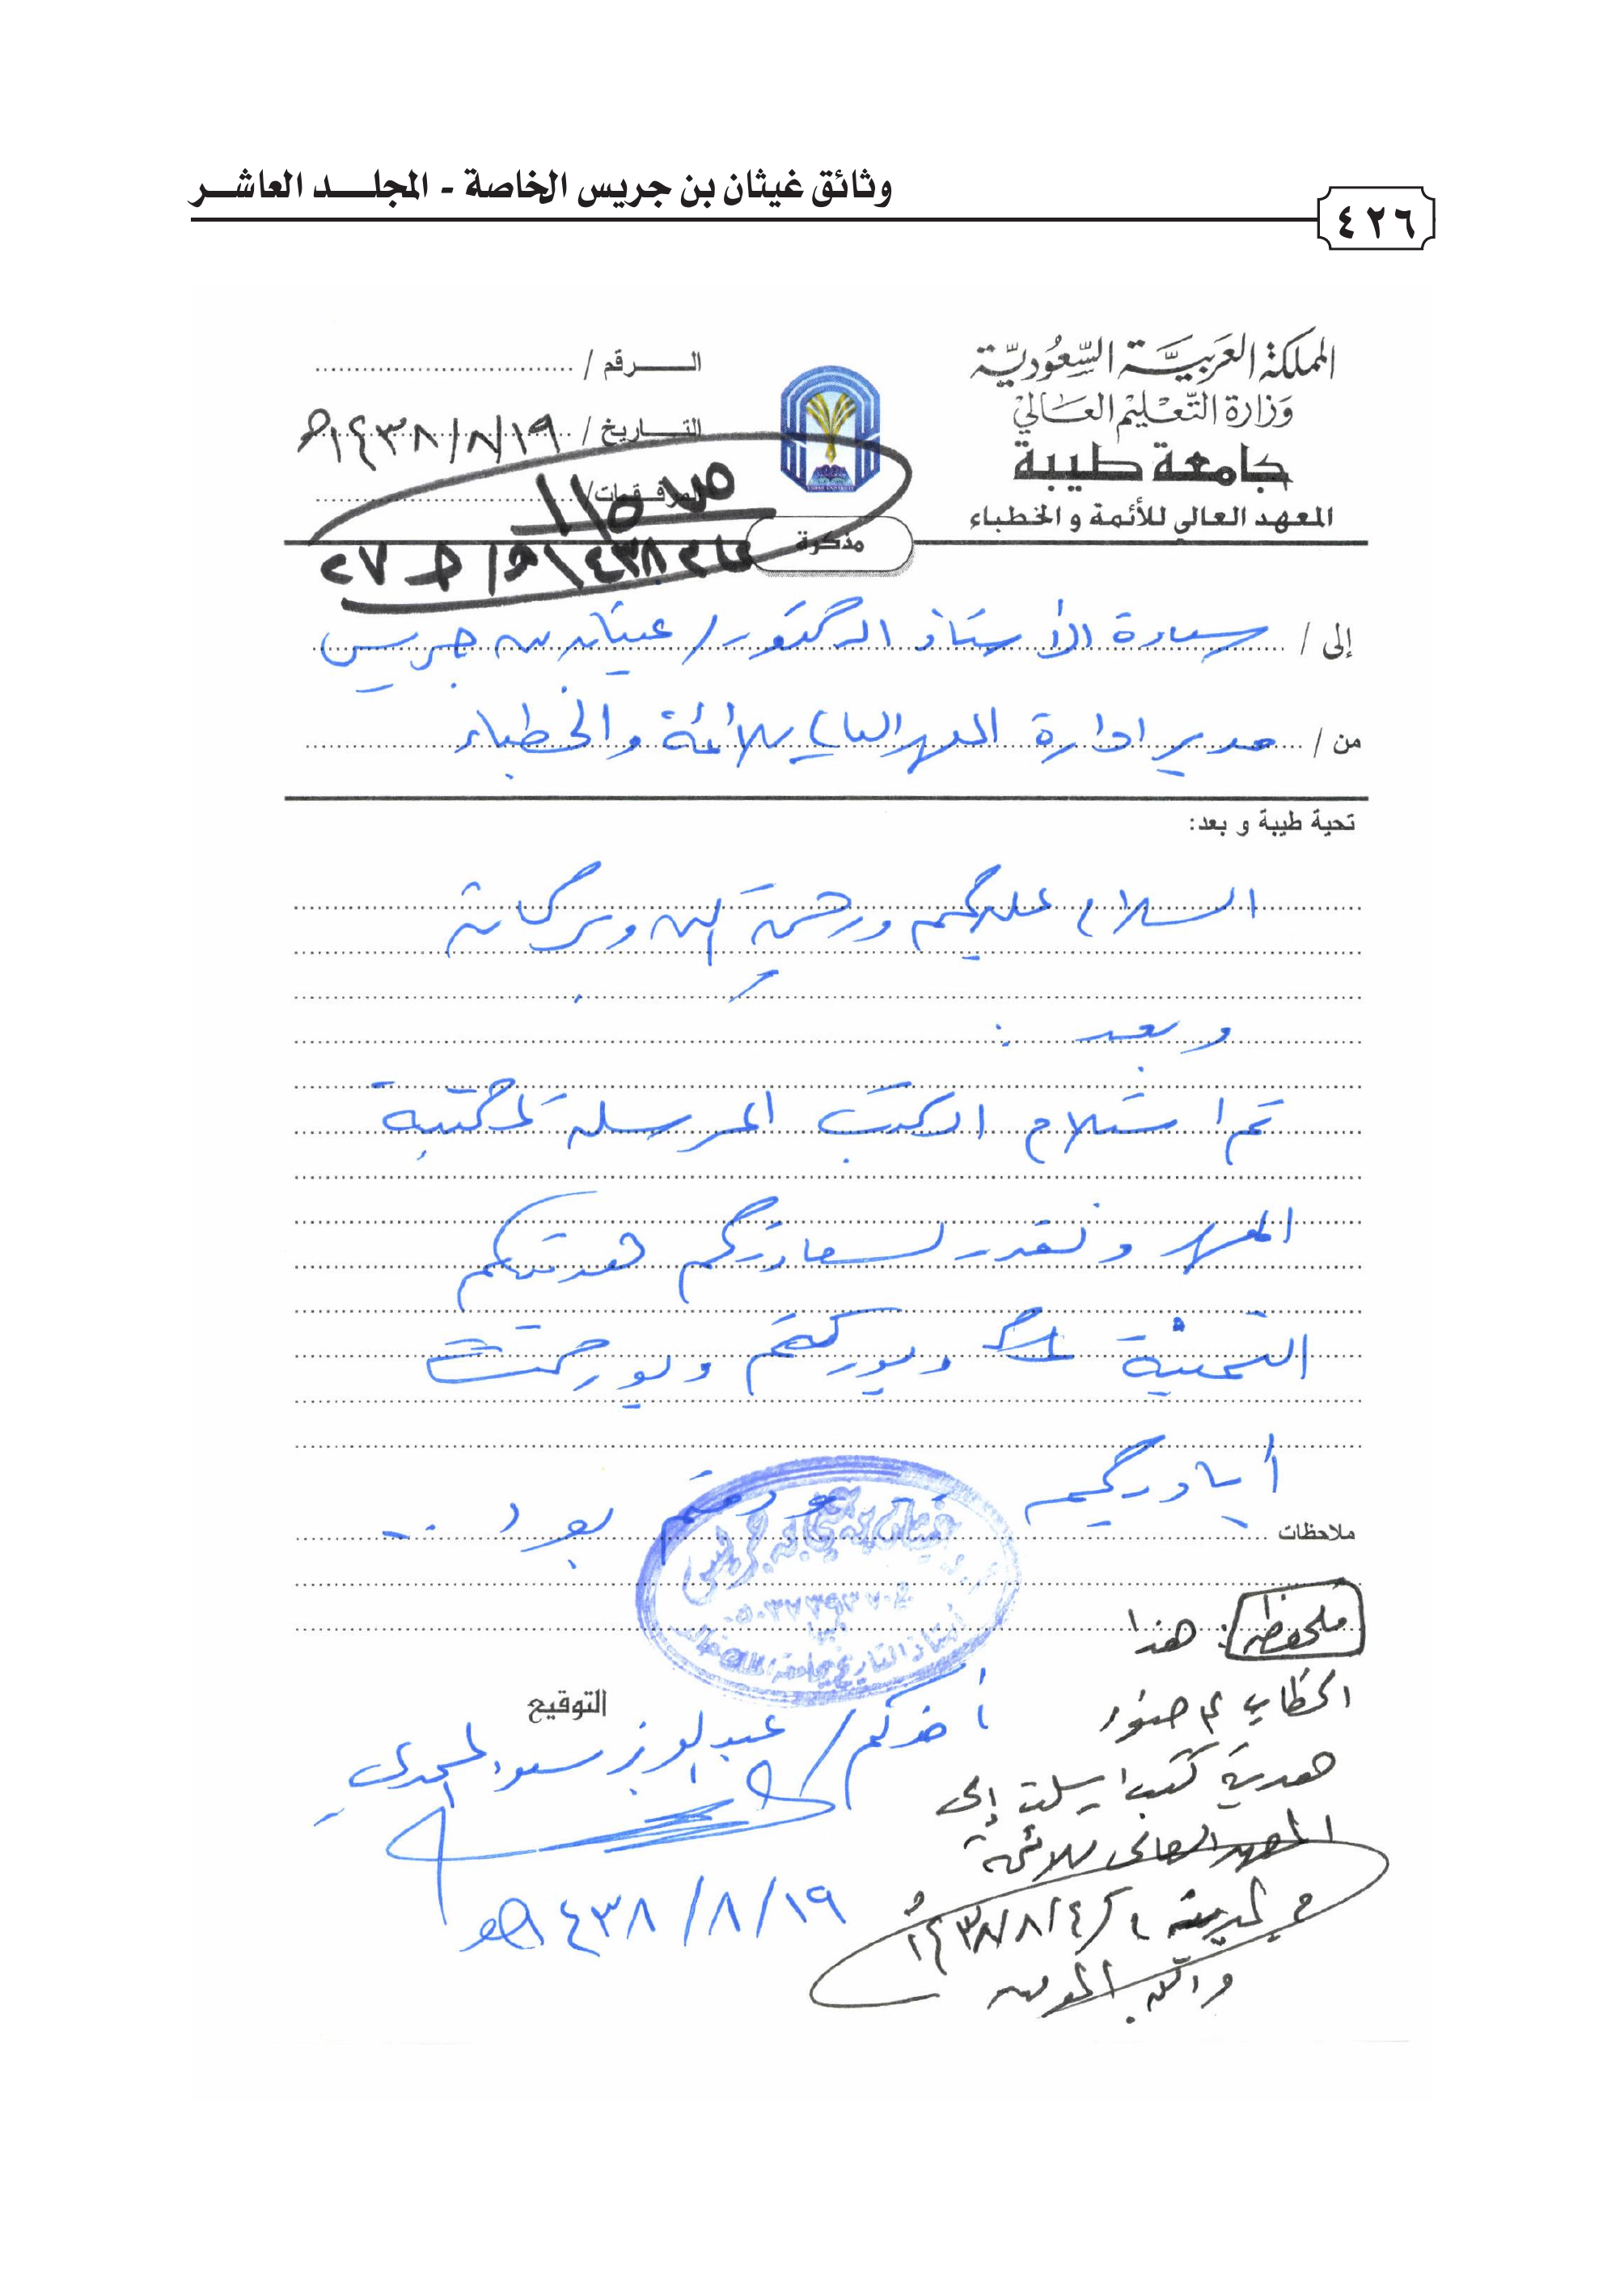 وثائق غيثان بن جريس الخاصة - المجلـــد العاشـــر
٤٢٦
المملكة العربية السعودية
وزارة التعليم العالي
جامعة طيبة
المعهد العالي للأئمة و الخطباء
الـــرقم /
التـــاريخ / ١٤٣٨/٨/١٩هـ
المرفـقـات/
مذكرة
إلى / سعادة الأستاذ الدكتور / غيثان بن جريس
من / مدير ادارة المعهد العالي للأئمة والخطباء
تحية طيبة و بعد:
السلام عليكم ورحمة الله وبركاته
وبعد :
تم استلام الكتب المرسلة لمكتبة
المعهد ونقدر لسعادتكم هديتكم
الثمينة وبوركتم وبوركت
أياديكم ودمتم بود ..
ملاحظات
ملحوظة : هذا
الخطاب في
هدية كتب أرسلت إلى
المعهد العالي للأئمة
في المدينة ١٤٣٨/٨/٤
والله الموفق
التوقيع
أخوكم / عبدالعزيز سعود
١٤٣٨/٨/١٩هـ